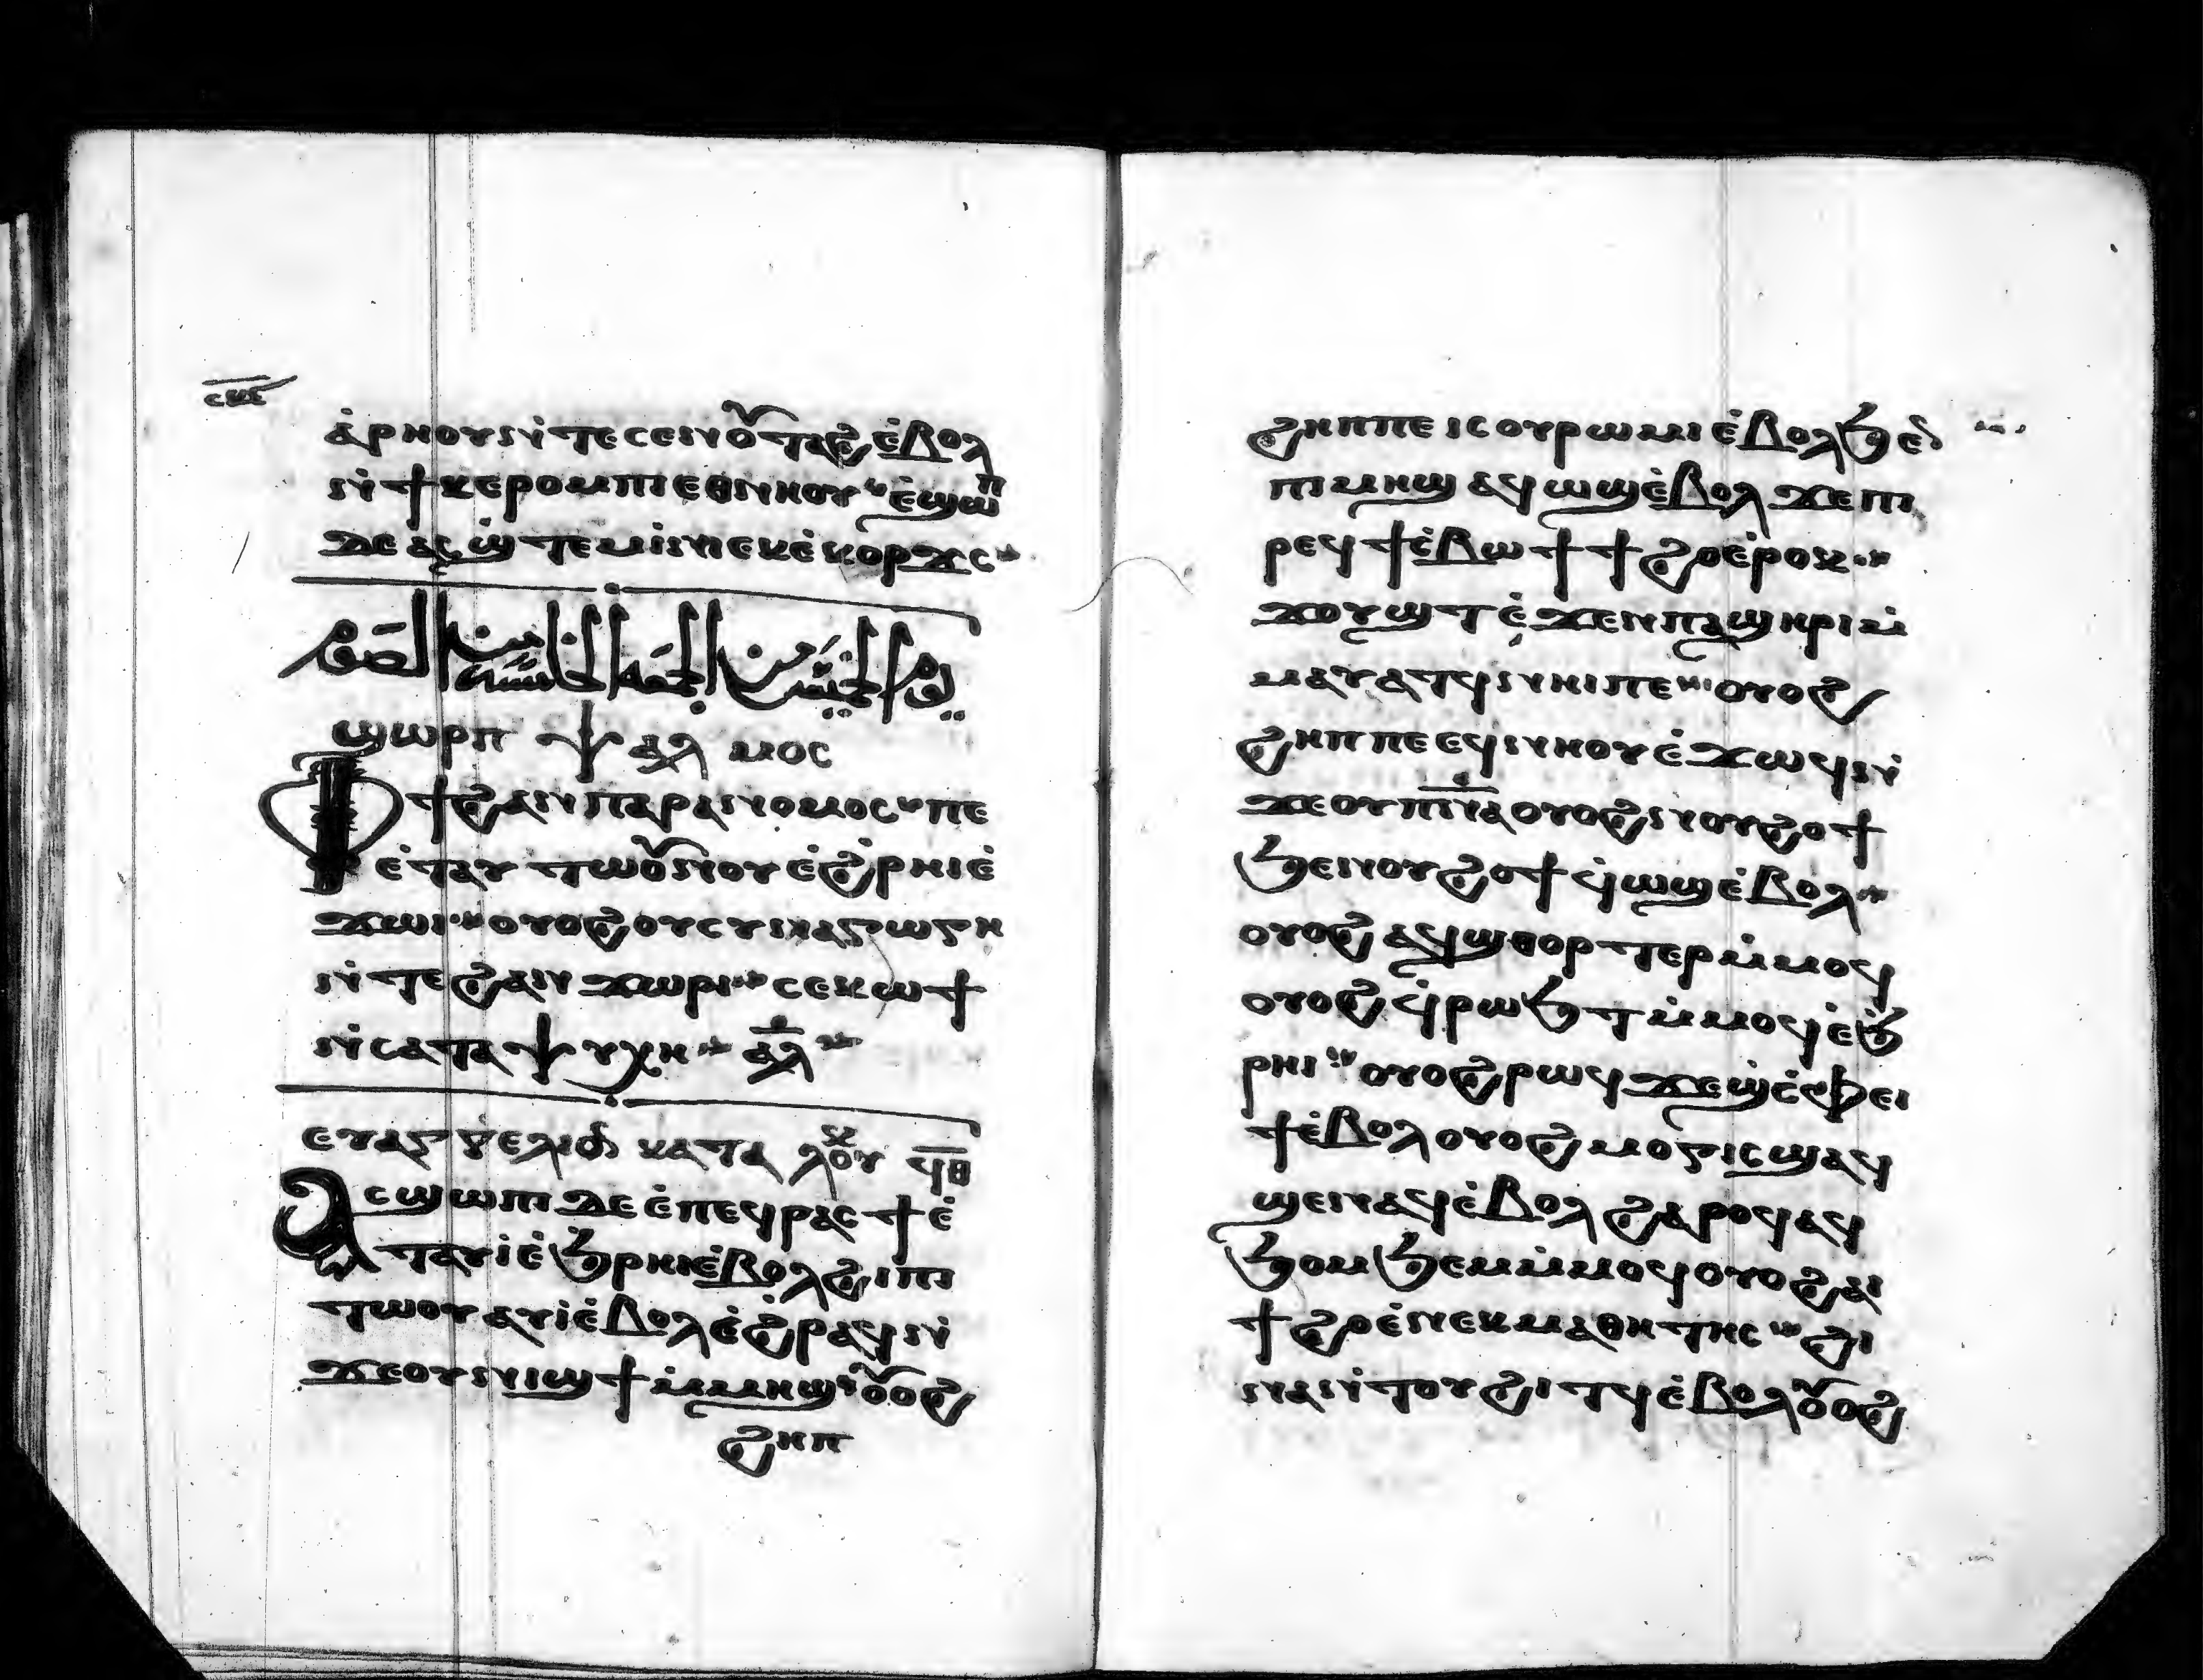 ⲥⲕⲉ
ⲁ̇ⲣⲏⲟⲩ ⲛ̇ⲧⲉⲥⲉⲛⲟⲩⲧⲁϩ ⲉ̇ⲃⲟⲗ
ⲛ̇ϯⲕⲉⲣⲟⲙⲡⲓ ⲉⲑⲛⲏⲟⲩ ⲉ̇ϣⲱⲡ
ⲇⲉ ⲁⲥϣ̇ⲧⲉⲙⲓ̇ⲛⲓ ⲉⲕⲉ̇ⲕⲟⲣϫⲥ
يوم الخميس من الجمعة الخامسة من الصوم
ϣⲱⲣⲡ ⲯⲁⲗⲙⲟⲥ
ⲫϯ ϩⲁⲛⲡⲁⲣⲁⲛⲟⲙⲟⲥ ⲡⲉ
ⲉ̇ⲧⲁⲩⲧⲱⲟⲩⲛⲟⲩ ⲉ̇ϩ̇ⲣⲏⲓ ⲉ̇
ϫⲱⲓ ⲟⲩⲟϩ ⲟⲩⲥⲩⲛⲁⲅⲱⲅⲏ
ⲛ̇ⲧⲉϩⲁⲛϫⲱⲣⲓ ⲥⲉⲕⲱϯ
ⲛ̇ⲥⲁⲧⲁⲯⲩⲭⲏ ⲁⲗ
ⲉⲩⲁⲅⲅⲉⲗⲓⲟⲛ ⲕⲁⲧⲁ ⲗⲟⲩⲕ ϥⲑ
ⲁⲥϣⲱⲡⲓ ⲇⲉ ⲉ̇ⲡⲉϥⲣⲁⲥϯ ⲉ̇
ⲧⲁⲩⲓ̇ ⲉ̇ϧⲣⲏⲓ ⲉ̇ⲃⲟⲗϩⲓⲡⲓ
ⲧⲱⲟⲩ ⲁⲩⲓ̇ ⲉ̇ⲃⲟⲗ ⲉ̇ϩ̇ⲣⲁϥ ⲛ̇
ϫⲉⲟⲩⲛⲓϣϯ ⲙ̇ⲙⲏϣ ⲟⲩⲟϩ
ϩⲏⲡ
ϩⲏⲡⲡⲉ ⲓⲥ ⲟⲩⲣⲱⲙⲓ ⲉ̇ⲃⲟⲗϧⲉⲛ
ⲡⲓⲙⲏϣ ⲁϥⲱϣ ⲉ̇ⲃⲟⲗ ϫⲉ ⲡⲓ
ⲣⲉϥϯⲉ̇ⲃⲱ ϯϯϩⲟ ⲉ̇ⲣⲟⲕ
ϫⲟⲩϣⲧ ⲉ̇ϫⲉⲛ ⲡⲁϣⲏⲣⲓ ⲙ̇
ⲙⲁⲩⲁⲧϥ ⲛⲏⲓ ⲡⲉ ⲟⲩⲟϩ
ϩⲏⲡⲡⲉ ⲉϥⲛⲏⲟⲩ ⲉ̇ϫⲱϥ ⲛ̇
ϫⲉⲟⲩⲡⲛⲁ ⲟⲩⲟϩ ⲛⲟⲩϩⲟϯ
ϧⲉⲛⲟⲩϩⲟϯ ϥ̇ⲱϣ ⲉ̇ⲃⲟⲗ
ⲟⲩⲟϩ ⲁϥϣⲑⲟⲣⲧⲉⲣ ⲙ̇ⲙⲟϥ
ⲟⲩⲟϩ ϥ̇ⲣⲱϧⲧ ⲙ̇ⲙⲟϥ ⲉ̇ϧ
ⲣⲏⲓ ⲟⲩⲟϩ ⲣⲱϥ ϫⲉϣ̇ⲥⲫⲉⲓ
ϯ ⲉ̇ⲃⲟⲗ ⲟⲩⲟϩ ⲙⲟⲅⲓⲥ ϣⲁϥ
ϣⲉⲛⲁϥ ⲉ̇ⲃⲟⲗϩⲁⲣⲟϥ ⲁϥ
ϧⲟⲙϧⲉⲙ ⲙ̇ⲙⲟϥ ⲟⲩⲟϩ ⲁⲓ
ϯϩⲟ ⲉ̇ⲛⲉⲕⲙⲁⲑⲏⲧⲏⲥ ϩⲓ
ⲛⲁ ⲛ̇ⲧⲟⲩϩⲓⲧϥ ⲉ̇ⲃⲟⲗ ⲟⲩⲟϩ